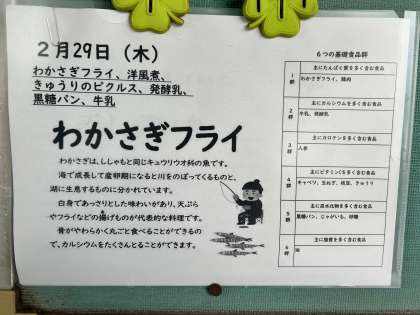 2月29日（木）
わかさぎフライ、洋風煮、
きゅうりのピクルス、発酵乳、
黒糖パン、牛乳
わかさぎフライ
わかさぎは、ししゃもと同じキュウリウオ科の魚です。
海で成長して産卵期になると川をのぼってくるものと、
湖に生息するものに分かれています。
白身であっさりとした味わいがあり、天ぷら
やフライなどの揚げものが代表的な料理です。
骨がやわらかく丸ごと食べることができるの
で、カルシウムをたくさんとることができます。
6つの基礎食品群
1群
主にたんぱく質を多く含む食品
わかさぎフライ、鶏肉
2群
主にカルシウムを多く含む食品
牛乳、発酵乳
3群
主にカロテンを多く含む食品
人参
4群
主にビタミンCを多く含む食品
キャベツ、玉ねぎ、枝豆、きゅうり
5群
主に炭水化物を多く含む食品
黒糖パン、じゃがいも、砂糖
6群
主に脂質を多く含む食品
油